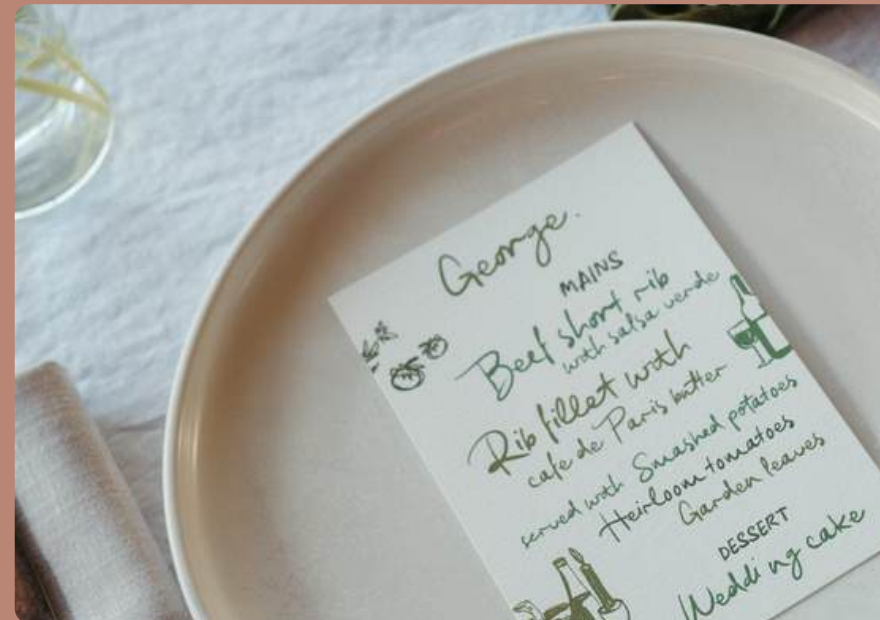 George.
MAINS
Beef short rib
with salsa verde
Rib fillet with
cafe de Paris butter
served with Smashed potatoes
Heirloom tomatoes
Garden leaves
DESSERT
Wedding cake